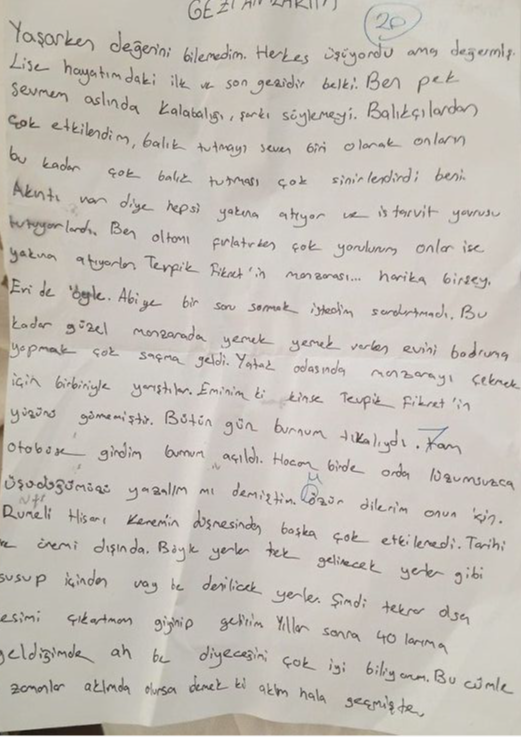 GEZİ
20
Yaşarken değerini bilemedim. Herkes üşüyordu ama değermiş.
Lise hayatımdaki ilk ve son gezidir belki. Ben pek
sevmem aslında kalabalığı, şarkı söylemeyi. Balıkçılardan
çok etkilendim, balık tutmayı seven biri olarak onların
bu kadar çok balık tutması çok sinirlendirdi beni.
Akıntı var diye hepsi yakına atıyor ve istavrit yavrusu
tutuyorlardı. Ben oltamı fırlatırken çok yorulurum onlar ise
yakına atıyorlar. Tevpik Fikret'in manzarası... harika birşey.
Evi de öyle. Abiye bir soru sormak istedim sordurtmadı. Bu
kadar güzel manzarada yemek yemek varken evini bodruma
yapmak çok saçma geldi. Yatak odasında manzarayı çekmek
için birbiriyle yarıştılar. Eminim ki kimse Tevpik Fikret'in
yüzünü görmemiştir. Bütün gün burnum tıkalıydı. Tam
otobüse girdim burnum açıldı. Hocam birde orda lüzumsuzca
üşüdüğümüzü yazalım mı demiştim. Özür dilerim onun için.
Rumeli Hisarı Kerem'in düşmesinden başka çok etkilemedi. Tarihi
ve önemi dışında. Böyle yerler tek gelinecek yerler gibi
susup içinden vay be denilicek yerler. Şimdi tekrar olsa
resimi çıkartmam giyinip gelirim Yıllar sonra 40 larıma
geldiğimde ah be diyeceğini çok iyi biliyorum. Bu cümle
zamanlar aklımda olursa demek ki aklım hala geçmişte.